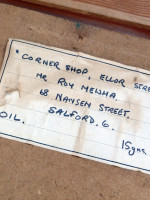 "CORNER SHOP, ELLOR STRE
MR ROY MEWHA.
68 NANSEN STREET.
SALFORD. 6.
OIL.
15gns